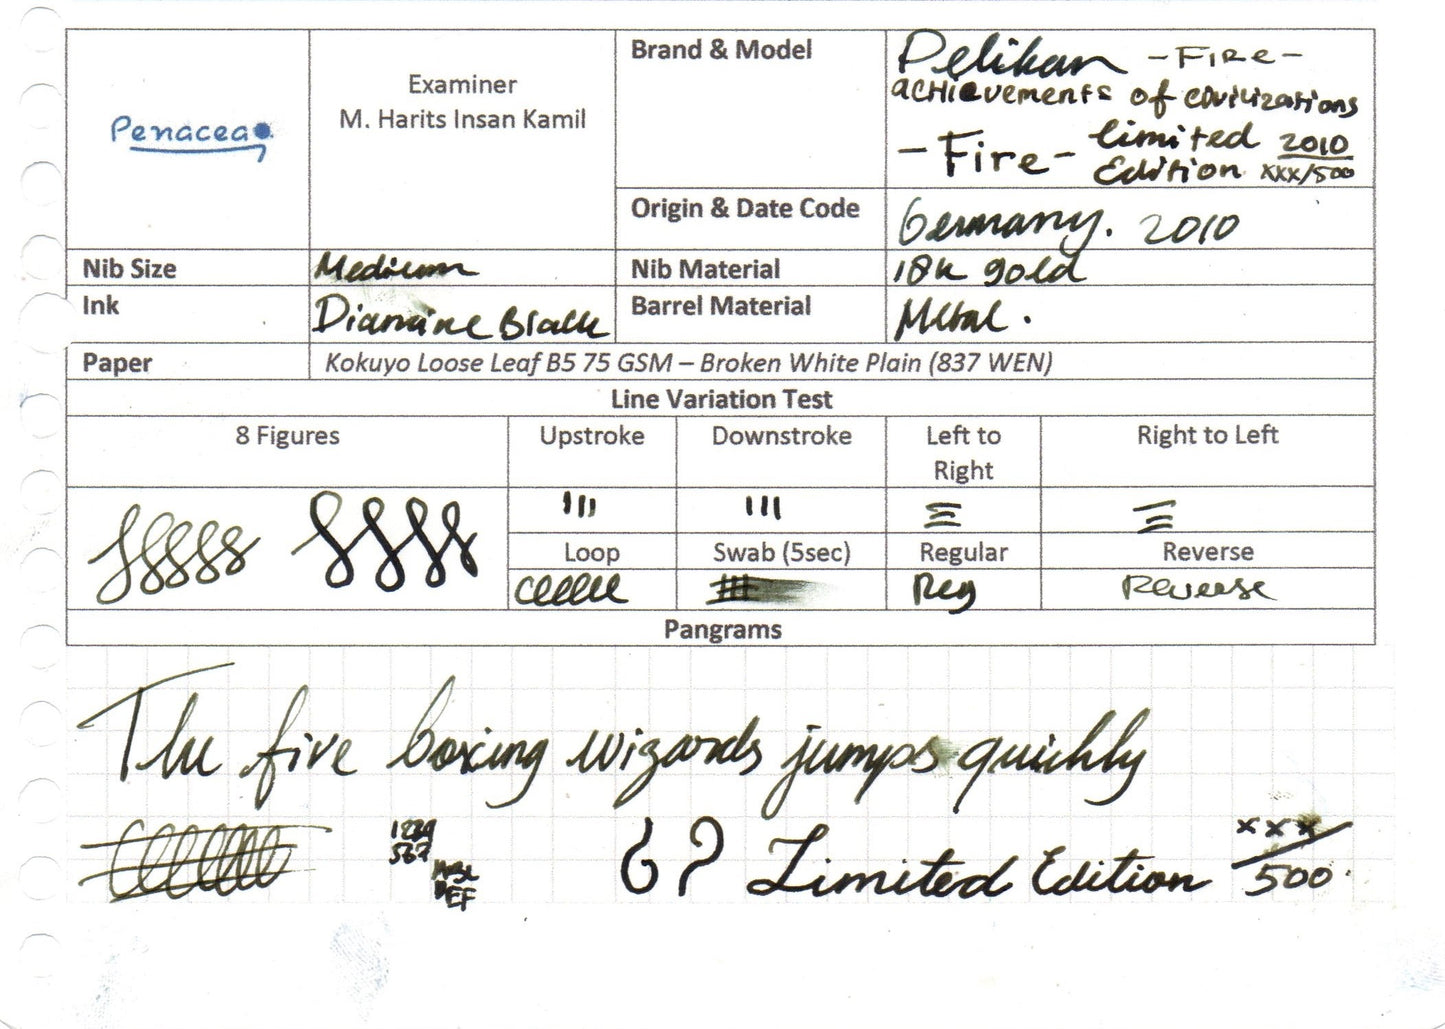 Penacea
Examiner
M. Harits Insan Kamil
Brand & Model
Pelikan - FIRe -
acHievements of civilizations
- Fire - limited Edition 2010 xxx/500
Origin & Date Code
Germany. 2010
Nib Size
Medium
Nib Material
18k gold
Ink
Diamine Black
Barrel Material
Metal.
Paper
Kokuyo Loose Leaf B5 75 GSM – Broken White Plain (837 WEN)
Line Variation Test
8 Figures
Upstroke
Downstroke
Left to
Right
Right to Left
Loop
Swab (5sec)
Regular
Reverse
Reg
Reverse
Pangrams
The five boxing wizards jumps quickly
1234
567
ABC
DEF
¿?
Limited Edition xxx/500.